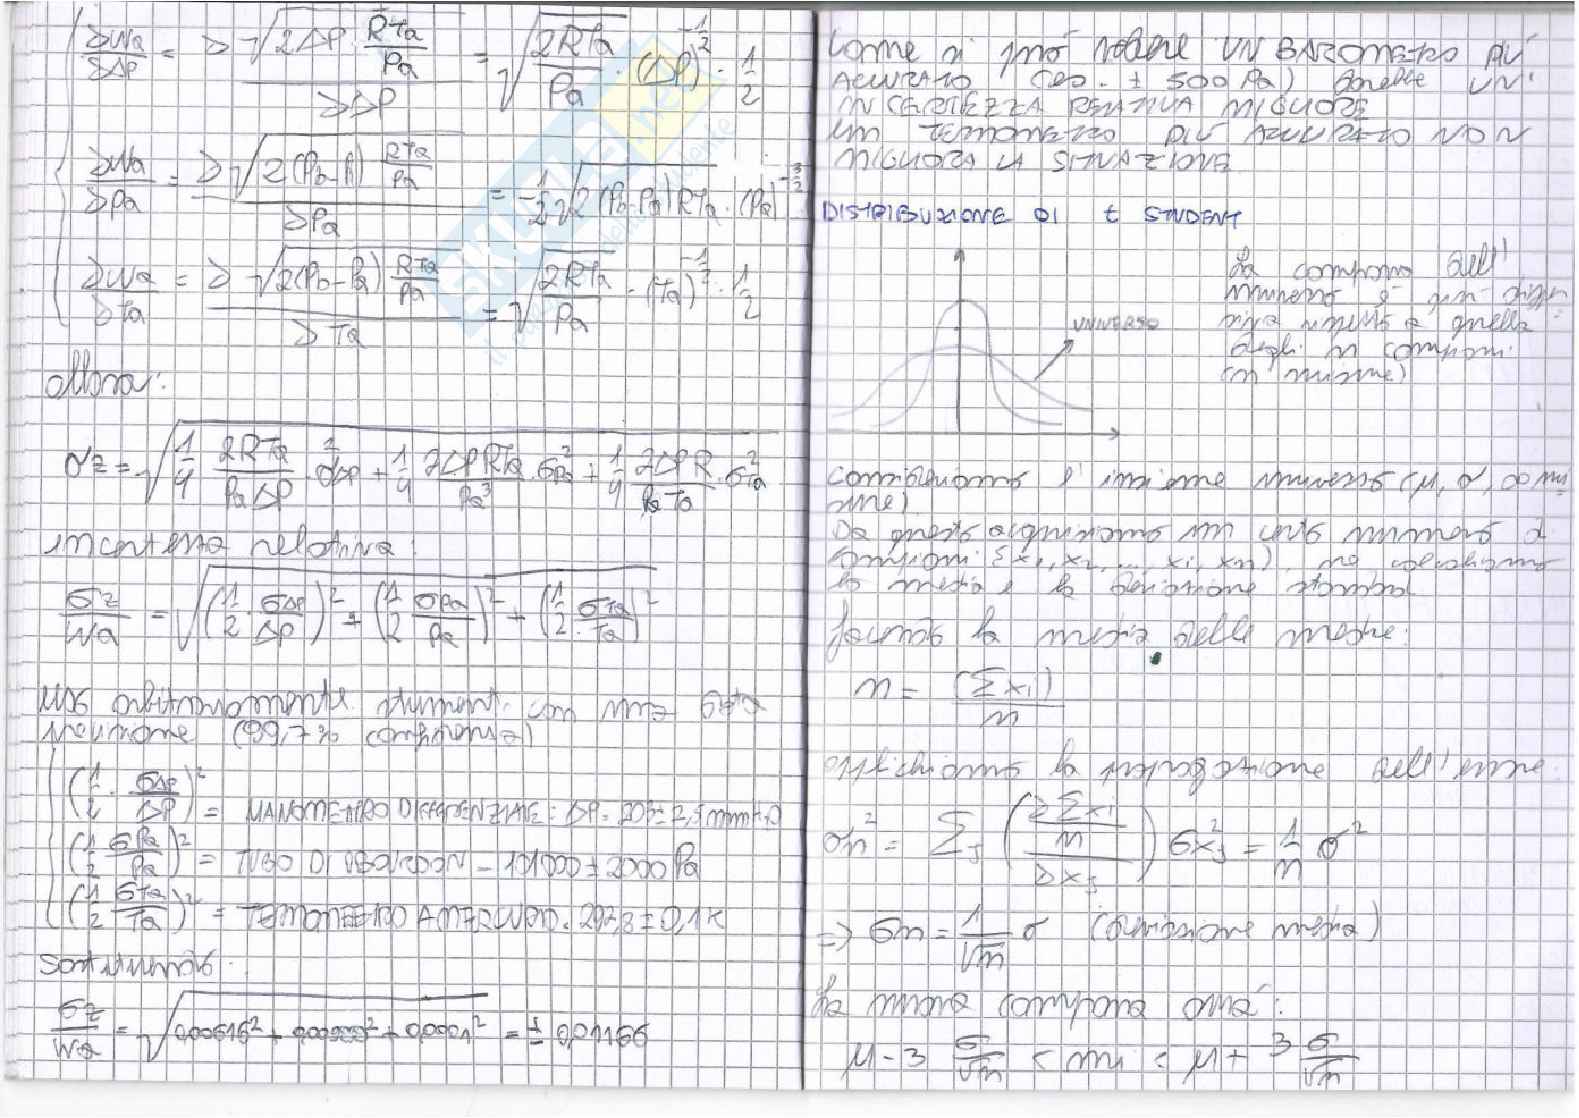 ∂Wa/∂ΔP = ∂√(2ΔP · RTa/Pa) / ∂ΔP = √(2RTa/Pa) · (ΔP)^(-1/2) · 1/2
∂Wa/∂Pa = ∂√(2(Pb-Pa) RTa/Pa) / ∂Pa = -1/2 √(2(Pb-Pa)RTa) · (Pa)^(-3/2)
∂Wa/∂Ta = ∂√(2(Pb-Pa) RTa/Pa) / ∂Ta = √(2RTa/Pa) · (Ta)^(-1/2) · 1/2
allora:
σz = √(1/4 2RTa/(PaΔP) · σ²ΔP + 1/4 2ΔPRTa/Pa³ · σ²Pa + 1/4 2ΔPR/(PaTa) · σ²Ta)
incertezza relativa:
σz/Wa = √((1/2 · σΔP/ΔP)² + (1/2 σPa/Pa)² + (1/2 · σTa/Ta)²)
uso arbitrariamente strumenti con una certa
(99,7% confidenza)
(1/2 · σΔP/ΔP)² = MANOMETRO DIFFERENZIALE = ΔP = 203 ± 2,5 mmH₂O
(1/2 σPa/Pa)² = TUBO DI BOURDON = 101000 ± 2000 Pa
(1/2 σTa/Ta)² = TERMOMETRO A MERCURIO: 292,8 ± 0,1 K
sostituendo:
σz/Wa = √(0,00616² + 0,0001²) = ± 0,01166
COME SI PUÒ VEDERE UN BAROMETRO PIÙ
ACCURATO (ES. ± 500 Pa) UN'
INCERTEZZA RELATIVA MIGLIORE
UN TERMOMETRO PIÙ ACCURATO NON
MIGLIORA LA SITUAZIONE
DISTRIBUZIONE DI t STUDENT
La campana dell'
universo è
rispetto a quella
degli n campioni
(n misure)
UNIVERSO
consideriamo l'insieme universo (μ, σ, ∞ mi
sure)
Da questo acquisiamo un certo numero di
campioni {x₁, x₂, ..., xi, xn}, ne calcoliamo
la media e la deviazione standard
facendo la media delle medie:
m = (Σxi)/n
applichiamo la propagazione dell'errore:
σm² = Σj (∂ Σxi/n / ∂xj) σ²xj = 1/n σ²
=> σm = 1/√n σ (deviazione media)
La nuova campana avrà:
μ - 3 σ/√n < mi < μ + 3 σ/√n